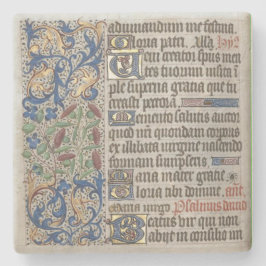 adiuuandum me festina.
Gloria patri. Alla
Ueni creator spūs men
tes tuorum visita im
ple superna gracia que tu
creasti pectora.
Memento salutis auctor
quod nri quondam corporis
ex illibata virgine nascendo
formam sumpseris.
Maria mater gracie
Gloria tibi domine. ant.
virgo. Psalmus dauid
Beatus vir qui non
abiit in consilio im